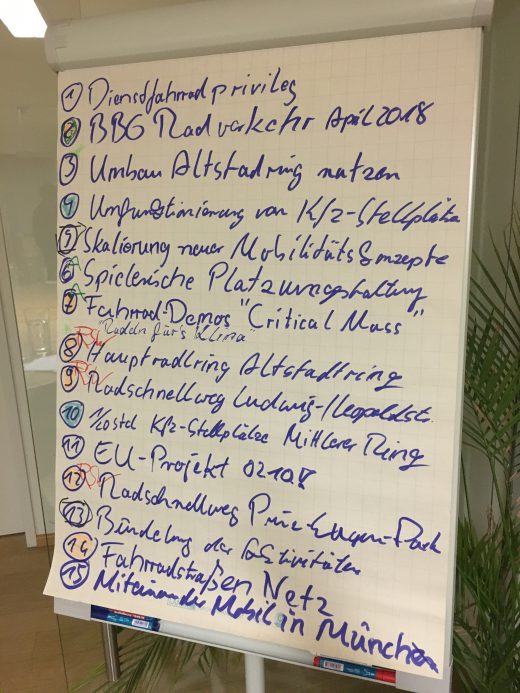 1 Dienstfahrradprivileg
2 BBG Radverkehr April 2018
3 Umbau Altstadtring nutzen
4 Umfunktionierung von Kfz-Stellplätze
5 Skalierung neuer Mobilitätskonzepte
6 Spielerische Platzumgestaltung
7 Fahrrad-Demos "Critical Mass"
"Radeln für's Klima"
8 Hauptradlring Altstadtring
9 Radschnellweg Ludwig-/Leopoldst.
10 Kfz-Stellplätze Mittlerer Ring
11 EU-Projekt
12 Radschnellweg Prinz-Eugen-Park
13 Bündelung der Aktivitäten
14 Fahrradstraßen Netz
15 Miteinander Mobil in München